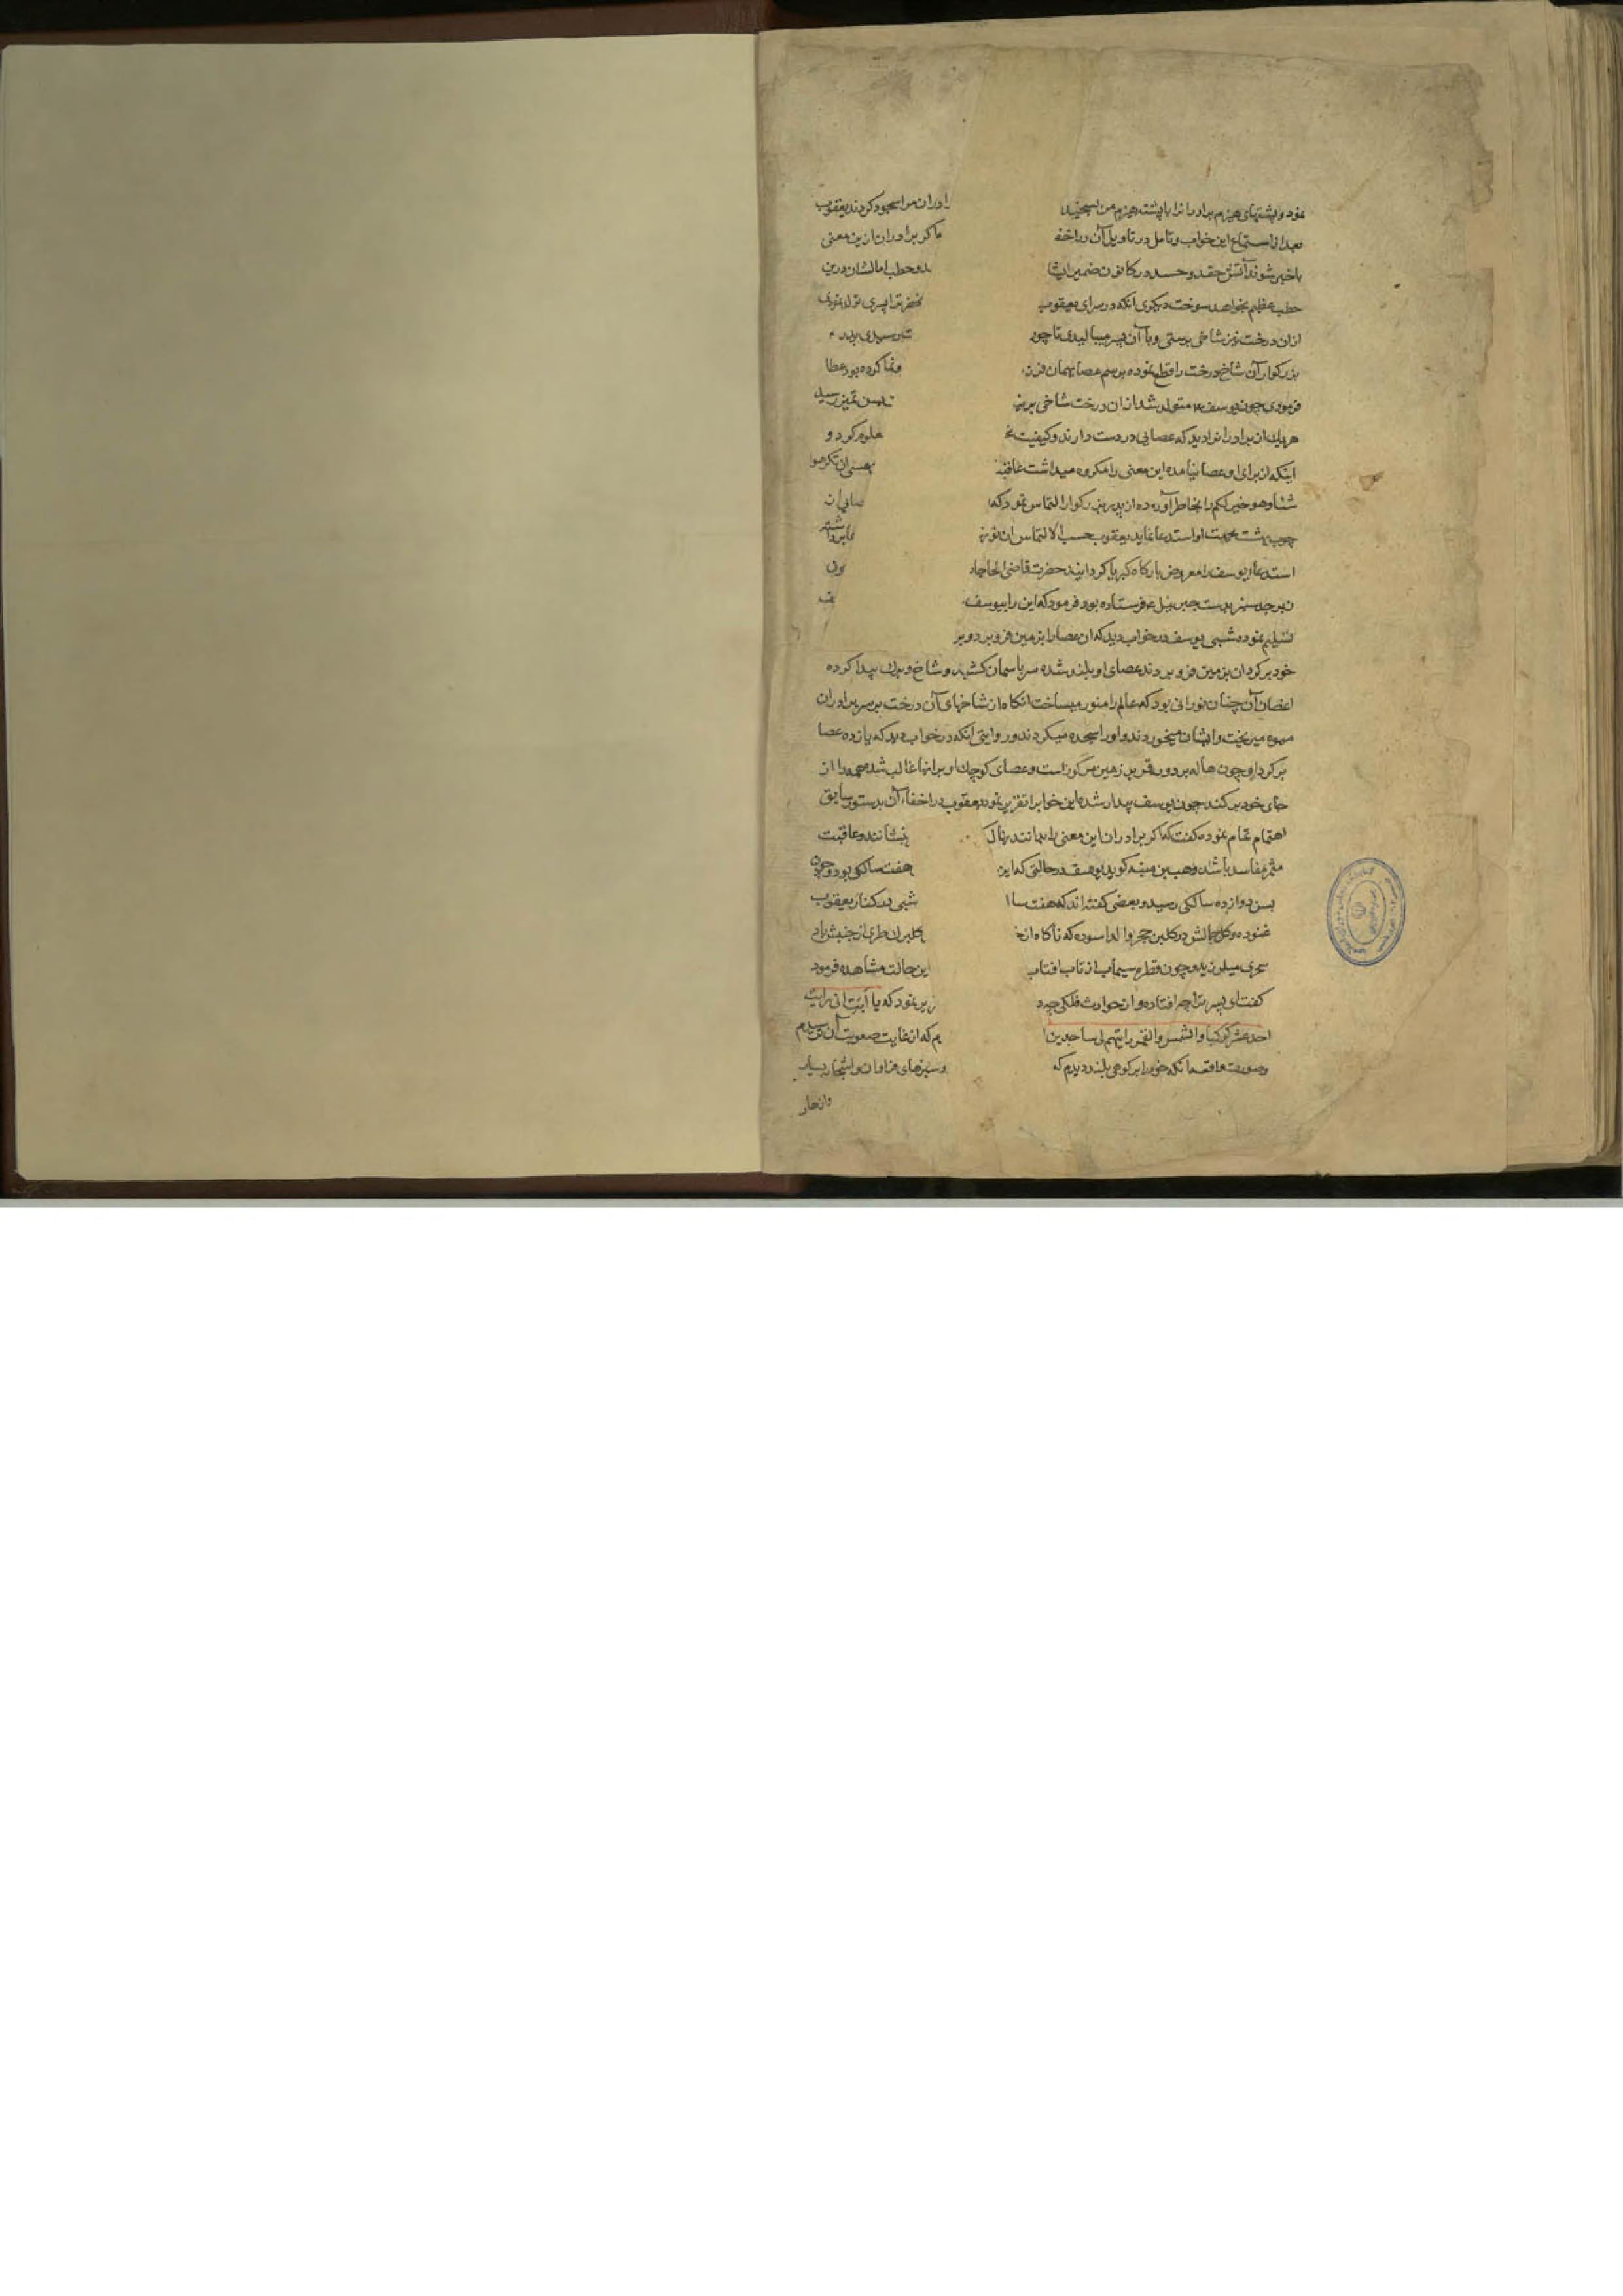 نمود و پشتهای هیزم برادرانرا با پشته هیزم من بسنجید رادران مرا سجود کردند یعقوب
بعد از استماع این خواب و تامل در تاویل آن در اخفا ماکر برادران ازین معنی
باخبر شوند آتش حقد و حسد در کانون ضمیر ایشا ـد و حطب امالشان درین
حطب عظیم بخواهد سوخت دیکری انکه در سرای یعقوب پسری تولد نمودی
ازان درخت نیز شاخی برستی و با آن پسر میبالیدی تا چون
بزرکوار آن شاخ درخت را قطع نموده برسم عصا بهمان فرزند ونما کرده بود عطا
فرمودی چون یوسف ع متولد شد ازان درخت شاخی بر تمیز رسید
هریک از برادرانرا دید که عصایی در دست دارند و کیفیت معلوم کرد و
اینکه از برای او عصا نیامده این معنی را مکروه میداشت عاقبة
شئا وهو خیر لکم را بخاطر آورده از پدر بزرکوار التماس نمود که
چوب بهشت بجهت او استدعا نماید یعقوب حسب الالتماس ان
استدعا یوسف را معروض بارکاه کبریا کردانید حضرت قاضی الحاجات
زبرجد سبز بدست جبرئیل ع فرستاده بود فرمود که این را بیوسف
تسلیم نموده شبی یوسف در خواب دید که ان عصا را بزمین فرو برد و بر
خود بر کرد ان بزمین فرو بردند عصای او بلند شده سر باسمان کشید و شاخ و برک پیدا کرده
اغصان آن چنان نورانی بود که عالم را منور میساخت انکاه از شاخهای آن درخت بر سر برادران
میوه میریخت و ایشان میخوردند و او را سجده میکردند و روایتی انکه در خواب دید که یازده عصا
بر کرد او چون هاله بر دور قمر بر زمین مرکوز است و عصای کوچک او بر انها غالب شده همه را از
جای خود بر کند چون یوسف بیدار شد این خوابرا تقریر نمود یعقوب در اخفاء آن بدستور سابق
اهتمام تمام نموده کفت که اکر برادران این معنی را بدانند نهال بنشانند و عاقبت
مثمر مفاسد باشد وهب بن منبه کوید یوسف در حالتی که این هفت سالکی بود و چون
بسن دوازده سالکی رسید و بعضی کفته اند که هفت سا شبی در کنار یعقوب
غنوده و کل جمالش در کلبن حجر والد اسوده که ناکاه از
سحری میلرزید و چون قطره سیماب از تاب افتاب این حالت مشاهده فرمود
کفت ای پسر ترا چه افتاده و از حوادث فلکی چه د ریر نمود که یا ابت انی رایت
احد عشر کوکبا والشمس والقمر رایتهم لی ساجدین م که از غایت صعوبت آن
و صورت واقعه انکه خود را بر کوهی بلند دیدم که و سبزهای فراوان و اشجار بسیار
وانهار